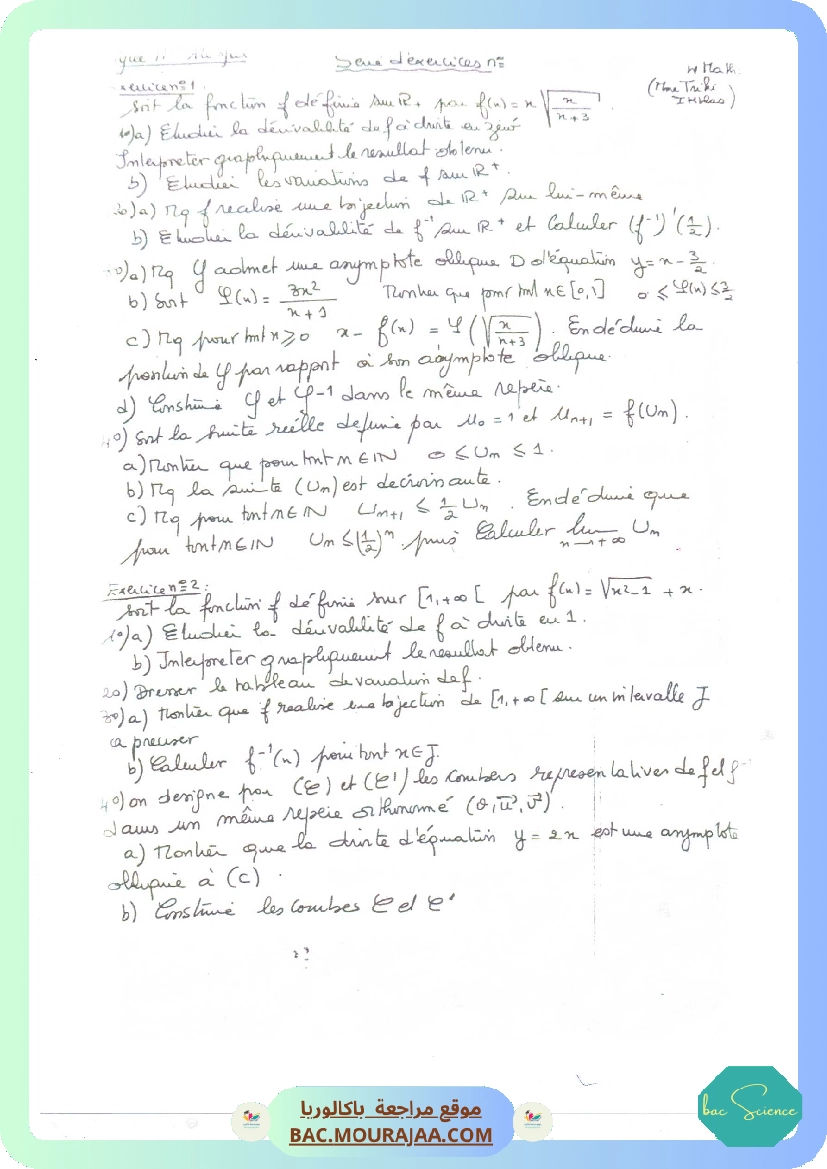 Serie d'exercices n°
4 Math.
(Mme Triki
Ikhlas)
Exercice n°1
Soit la fonction f définie sur ℝ+ par f(x) = x√(x/(x+3)).
1°)a) Etudier la dérivabilité de f à droite en zéro
Interpreter graphiquement le resultat obtenu.
b) Etudier les variations de f sur ℝ+.
2°)a) Mq f realise une bijection de ℝ+ sur lui-même
b) Etudier la dérivabilité de f⁻¹ sur ℝ+ et Calculer (f⁻¹)'(1/2).
3°)a) Mq 𝒞f admet une asymptote oblique D d'équation y = x - 3/2
b) Soit φ(x) = 3x²/(x+1) Montrer que pour tout x ∈ [0,1] 0 ≤ φ(x) ≤ 3/2
c) Mq pour tout x ≥ 0 x - f(x) = φ(√(x/(x+3))). En déduire la
position de 𝒞f par rapport à son asymptote oblique.
d) Construire 𝒞f et 𝒞f-1 dans le même repère.
4°) Soit la suite réelle definie par U₀ = 1 et Uₙ₊₁ = f(Uₙ).
a) Montrer que pour tout n ∈ IN 0 ≤ Uₙ ≤ 1.
b) Mq la suite (Uₙ) est decroissante.
c) Mq pour tout n ∈ IN Uₙ₊₁ ≤ 1/2 Uₙ. En déduire que
pour tout n ∈ IN Uₙ ≤ (1/2)ⁿ. puis Calculer lim n→+∞ Uₙ
Exercice n°2:
soit la fonction f définie sur [1,+∞[ par f(x) = √(x²-1) + x.
1°)a) Etudier la dérivabilité de f à droite en 1.
b) Interpreter graphiquement le resultat obtenu.
2°) Dresser le tableau de variation de f.
3°)a) Montrer que f realise une bijection de [1,+∞[ sur un intervalle J
a preciser
b) Calculer f⁻¹(x) pour tout x ∈ J.
4°) on designe par (𝒞) et (𝒞') les courbes representatives de f et f⁻¹
dans un même repère orthonormé (O, u⃗, v⃗).
a) Montrer que la droite d'équation y = 2x est une asymptote
oblique à (C).
b) Construire les courbes 𝒞 et 𝒞'
موقع مراجعة باكالوريا
BAC.MOURAJAA.COM
bac Science